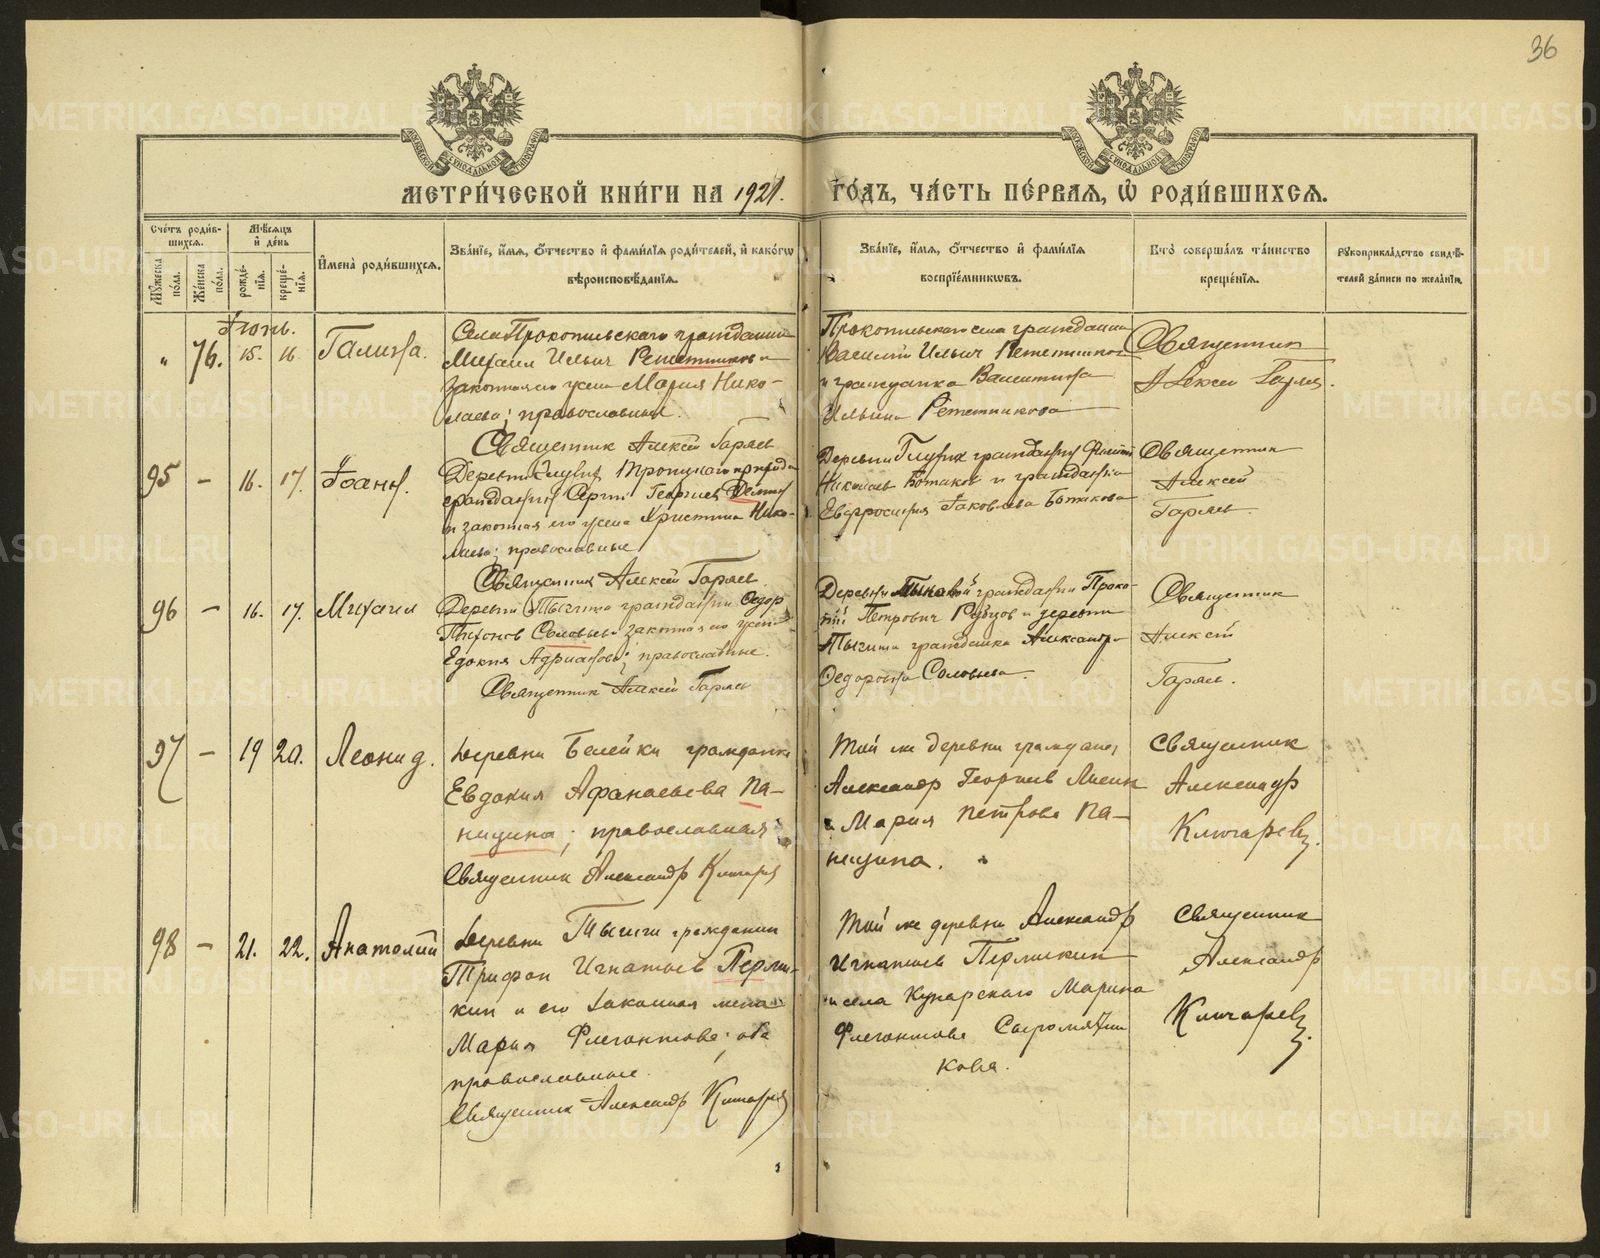 36
МЕТРИ́ЧЕСКОЙ КНИ́ГИ НА 1921. ГО́ДЪ, ЧА́СТЬ ПЕ́РВАЯ, Ѽ РОДИ́ВШИХСЯ.
Сче́тъ роди́в-
шихся.
Мѣсяцъ
и де́нь
Му́жеска по́ла.
Же́нска по́ла.
рожде́-
нія.
креще́-
нія.
Имена̀ роди́вшихся.
Зва́ніе, и́мя, о́тчество и фами́лія роди́телей, и како́гѡ
вѣроисповѣ́данія.
Зва́ніе, и́мя, о́тчество и фами́лія
воспріе́мникѡвъ.
Кто̀ соверша́лъ та́инство
креще́нія.
Рꙋкоприкла́дство свидѣ́-
телей за́писи по жела́нію.
Іюнь.
" 76. 15. 16. Галина.
Села Прокопьевского гражданин
Михаил Ильич Решетников и
законная его жена Мария Нико-
лаева; православные.
Священник Алексей Гаряев
Прокопьевского села гражданин
Василий Ильич Решетников
и гражданка Валентина
Ильина Решетникова
Священник
Алексей Гаряев.
95 – 16. 17. Іоанн.
Деревни Глубик Троицкого прихода
гражданин Сергий Георгиев Демин
и законная его жена Христина Нико-
лаева; православные
Священник Алексей Гаряев.
Деревни Глубик гражданин
Николаев Ботаков и гражданка
Евфросиния Іаковлева Ботакова
Священник
Алексей
Гаряев.
96 – 16. 17. Михаил
Деревни Тычина гражданин Федор
Тихонов Соловьев законная его жена
Едокия Адрианова; православные.
Священник Алексей Гаряев
Деревни гражданин Проко-
пий Петрович Рубцов и деревни
Тычина гражданка Александра
Федоровна Соловьева.
Священник
Алексей
Гаряев.
97 – 19 20. Леонид.
Деревни Белейки гражданка
Евдокия Афанасьева Па-
ницина; православная
Священник Александр Ключарев
Той же деревни гражданин
Александр Георгиев
и Мария Петрова Па-
ницина.
Священник
Александр
Ключаревъ.
98 – 21. 22. Анатолий
Деревни Тычиги гражданин
Трифон Игнатьев Перми-
кин и его законная жена
Мария Флегонтова; оба
православные.
Священник Александр Ключарев
Той же деревни Александр
Игнатьев Пермикин
и села Кунарского Марина
Флегонтова Сыромятни
кова.
Священник
Александр
Ключаревъ.
METRIKI.GASO-URAL.RU